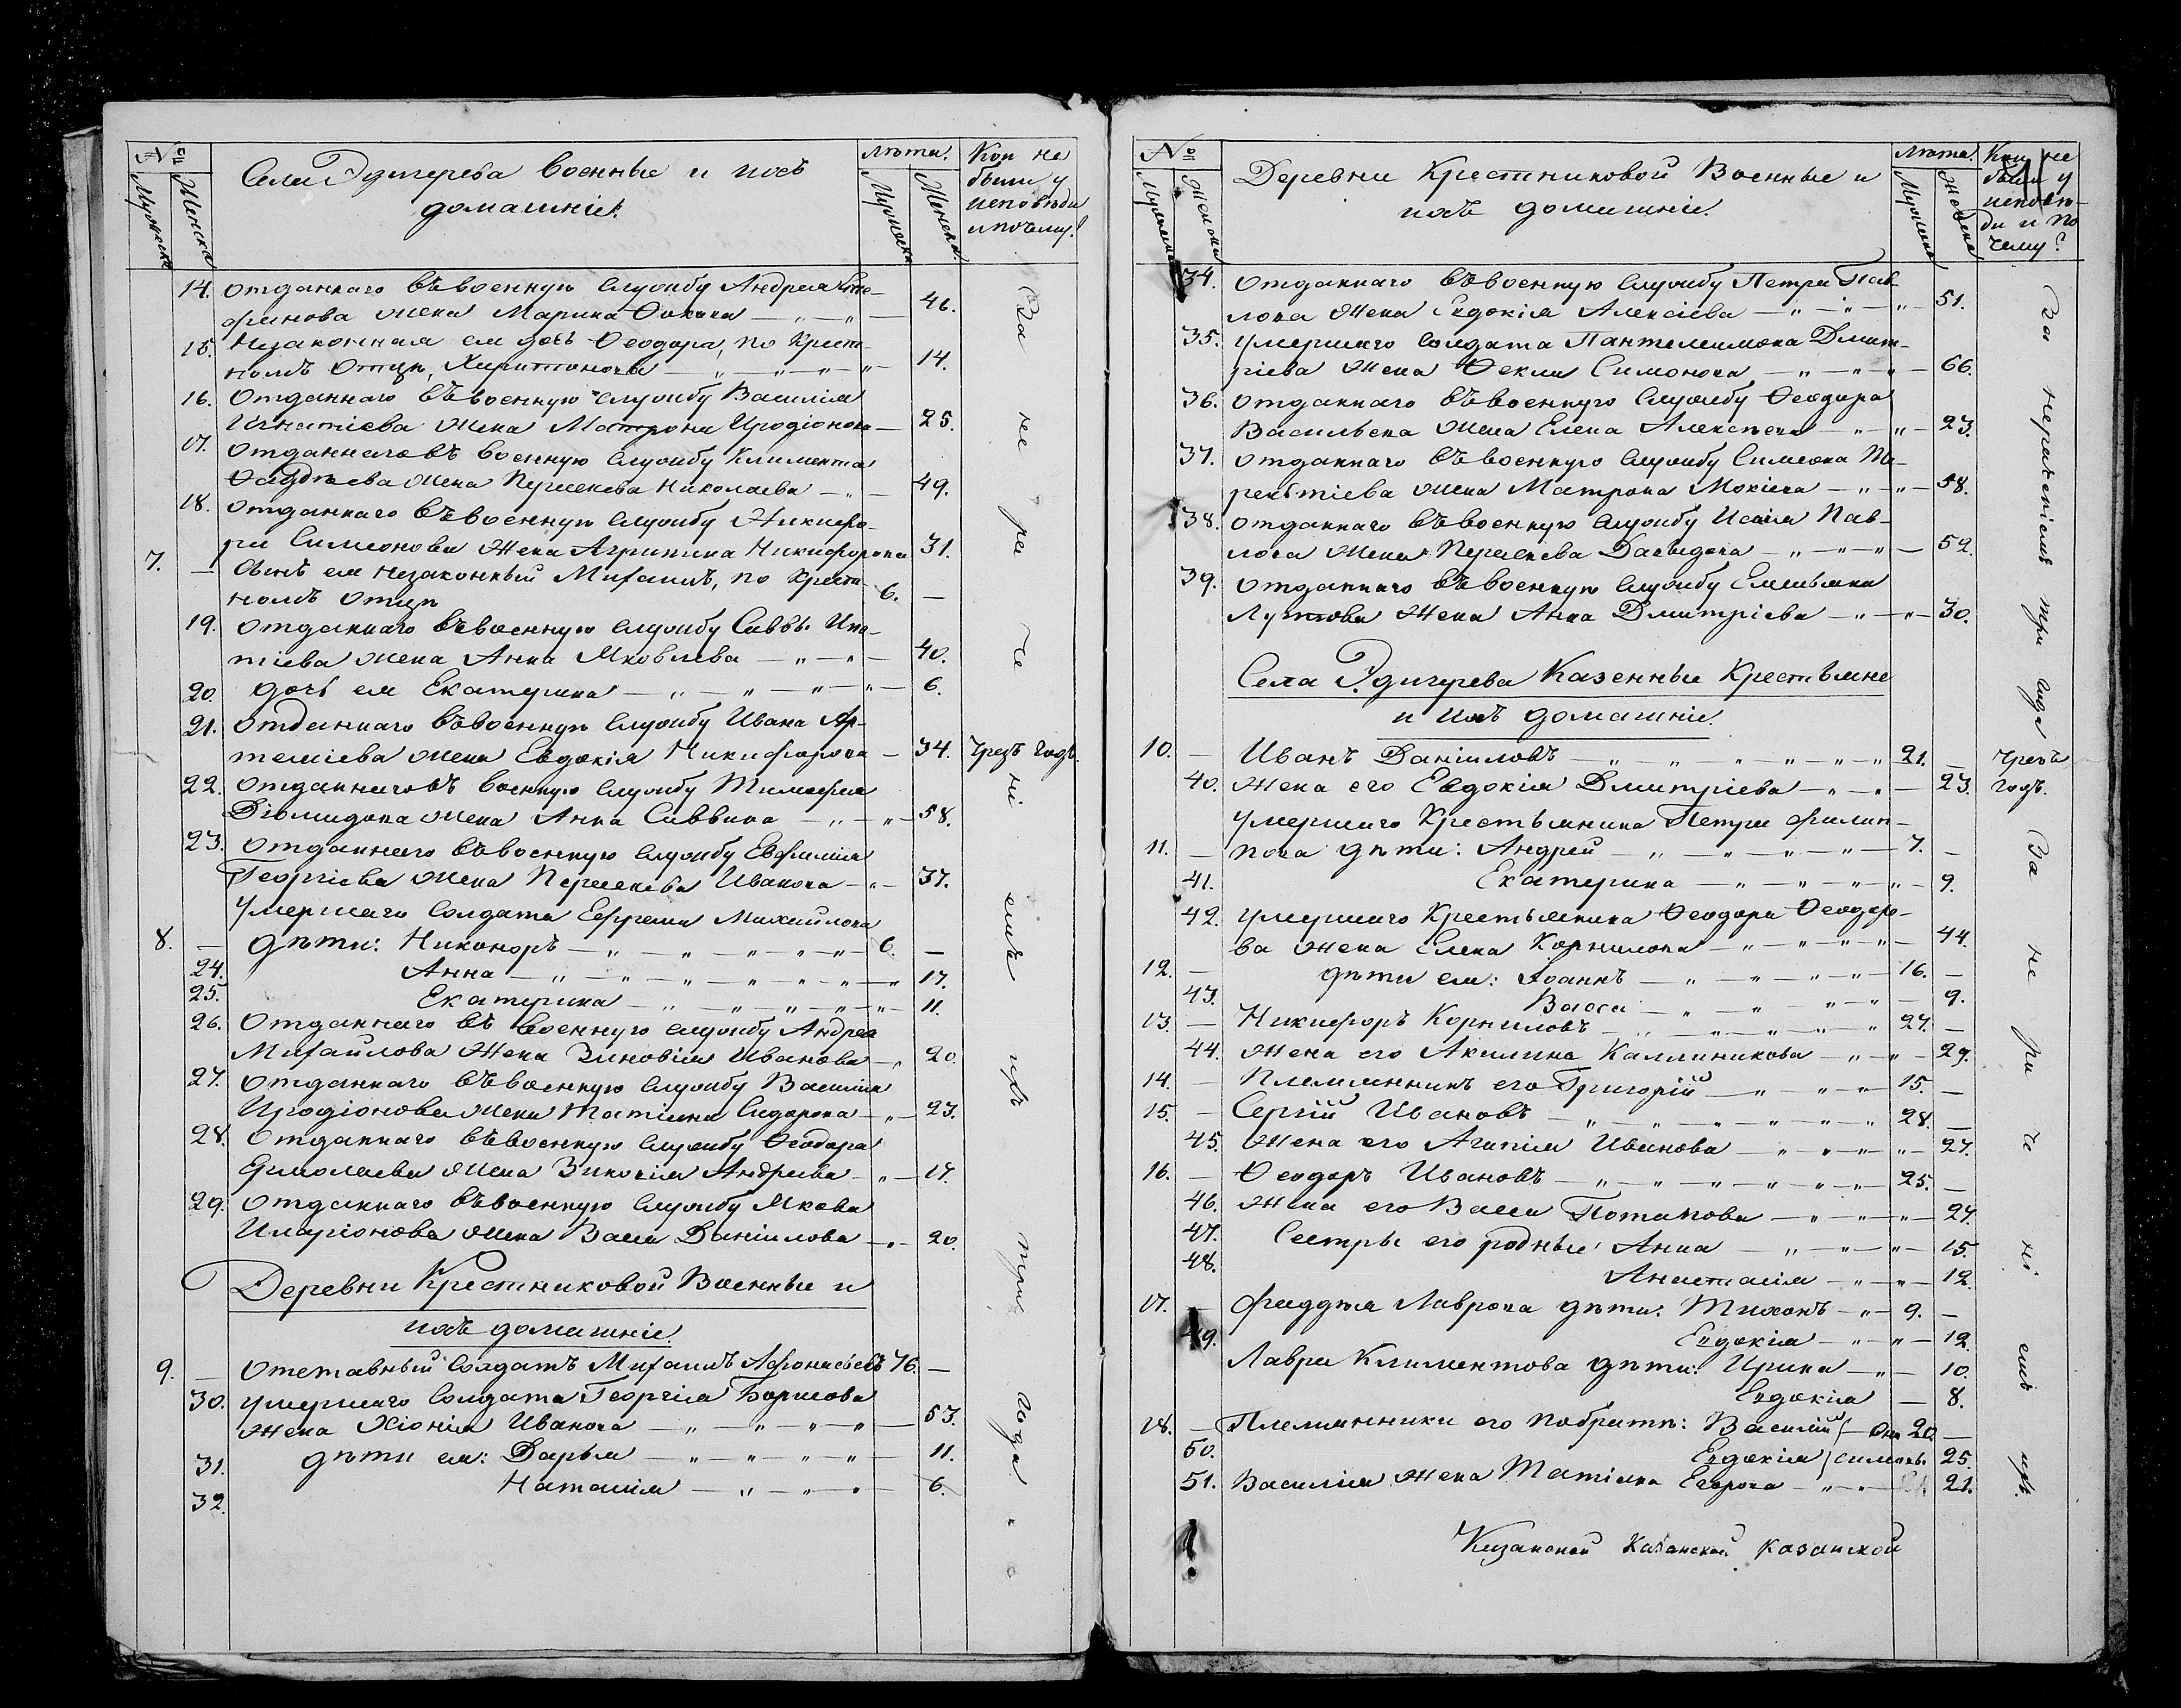 № Лѣта. Кои не
Мужеска Женска Села Эдигерева Военные и ихъ Мужеска Женска были у
домашніе. исповѣди
и почему?
14. Отданнаго въ военную службу Андрея
фимова жена Марина 46.
15. Незаконная ея дочь Ѳеодора, по крест-
номъ отцѣ, Харитонова 14.
16. Отданнаго въ военную службу Василія
Игнатіева жена Матрона Иродіонова 25.
17. Отданнаго въ военную службу Климента
Ѳаддѣева жена Параскева Николаева 49.
18. Отданнаго въ военную службу Никифо-
ра Симеонова жена Агрипина Никифорова 31.
7. — Сынъ ея незаконный Михаилъ, по крест-
номъ отцѣ 6. —
19. Отданнаго въ военную службу Саввы Ипа-
тіева жена Анна Яковлева 40.
20. дочь ея Екатерина 6.
21. Отданнаго въ военную службу Ивана Ар-
темiева жена Евдокія Никифорова 34. Чрезъ годъ.
22. Отданнаго въ военную службу Тимофея
Діомидова жена Анна Саввина 58.
23. Отданнаго въ военную службу Евфимія
Георгіева жена Параскева Иванова 37.
Умершаго солдата Ефрема Михайлова
8. — дѣти: Никоноръ 6. —
24. Анна 17.
25. Екатерина 11.
26. Отданнаго въ военную службу Андрея
Михайлова жена Зиновія Иванова 20.
27. Отданнаго въ военную службу Василія
Иродіонова жена Татіана Сидорова 23.
28. Отданнаго въ военную службу Ѳеодора
Ермолаева жена Зиновія Андреева 17.
29. Отданнаго въ военную службу Якова
Иларіонова жена Васса Даніилова 20.
Деревни Крестниковой Военные и
ихъ домашніе.
9. — Отставный солдатъ Михаилъ Афонасьевъ 76. —
30. Умершаго солдата Георгія Борисова
жена Хіонія Иванова 53.
31. дѣти ея: Дарья 11.
32. Наталія 6.
За нераченіемъ ихъ три года
№ Лѣта. Кои не
Мужеска Женска Деревни Крестниковой Военные и Мужеска Женска были у
ихъ домашніе. исповѣ-
ди и по
чему?
34. Отданнаго въ военную службу Петра Пав-
лова жена Евдокія Алексіева 51.
35. Умершаго солдата Пантелеимона Дмит-
ріева жена Ѳекла Симонова 66.
36. Отданнаго въ военную службу Ѳеодора
Васильева жена Елена Алексѣева 23.
37. Отданнаго въ военную службу Симеона Те-
рентіева жена Матрона Мокіева 58.
38. Отданнаго въ военную службу Исаія Пав-
лова жена Параскева Давыдова 52.
39. Отданнаго въ военную службу Емельяна
жена Анна Дмитріева 30.
Села Эдигерева Казенные Крестьяне
и ихъ домашніе.
10. — Иванъ Даніиловъ 21. — Чрезъ
40. жена его Евдокія Дмитріева 23. годъ.
Умершаго крестьянина Петра Филип-
11. — пова дѣти: Андрей 7. —
41. Екатерина 9.
42. Умершаго крестьянина Ѳеодора Ѳеодоро-
ва жена Елена Корнилова 44.
12. — дѣти ея: Іоаннъ 16. —
43. Васса 9.
13. — Никифоръ Корниловъ 27. —
44. жена его Акилина Каллиникова 29.
14. — Племянникъ его Григорій 15. —
15. — Сергій Ивановъ 28. —
45. жена его Агапія Иванова 27.
16. — Ѳеодоръ Ивановъ 25. —
46. жена его Васса Потапова 27.
47. Сестры его родные Анна 15.
48. Анастасія 12.
17. — Фаддѣя Лаврова дѣти: Тихонъ 9. —
49. Евдокія 12.
Лавра Климентова дѣти: Ирина 10.
Евдокія 8.
18. — Племянники его по братѣ: Василій 20. —
50. Евдокія 25.
51. Василія жена Татіана Егорова 21.
Казанской Казанской Казанской
За нераченіемъ три года
За нераченіемъ ихъ.